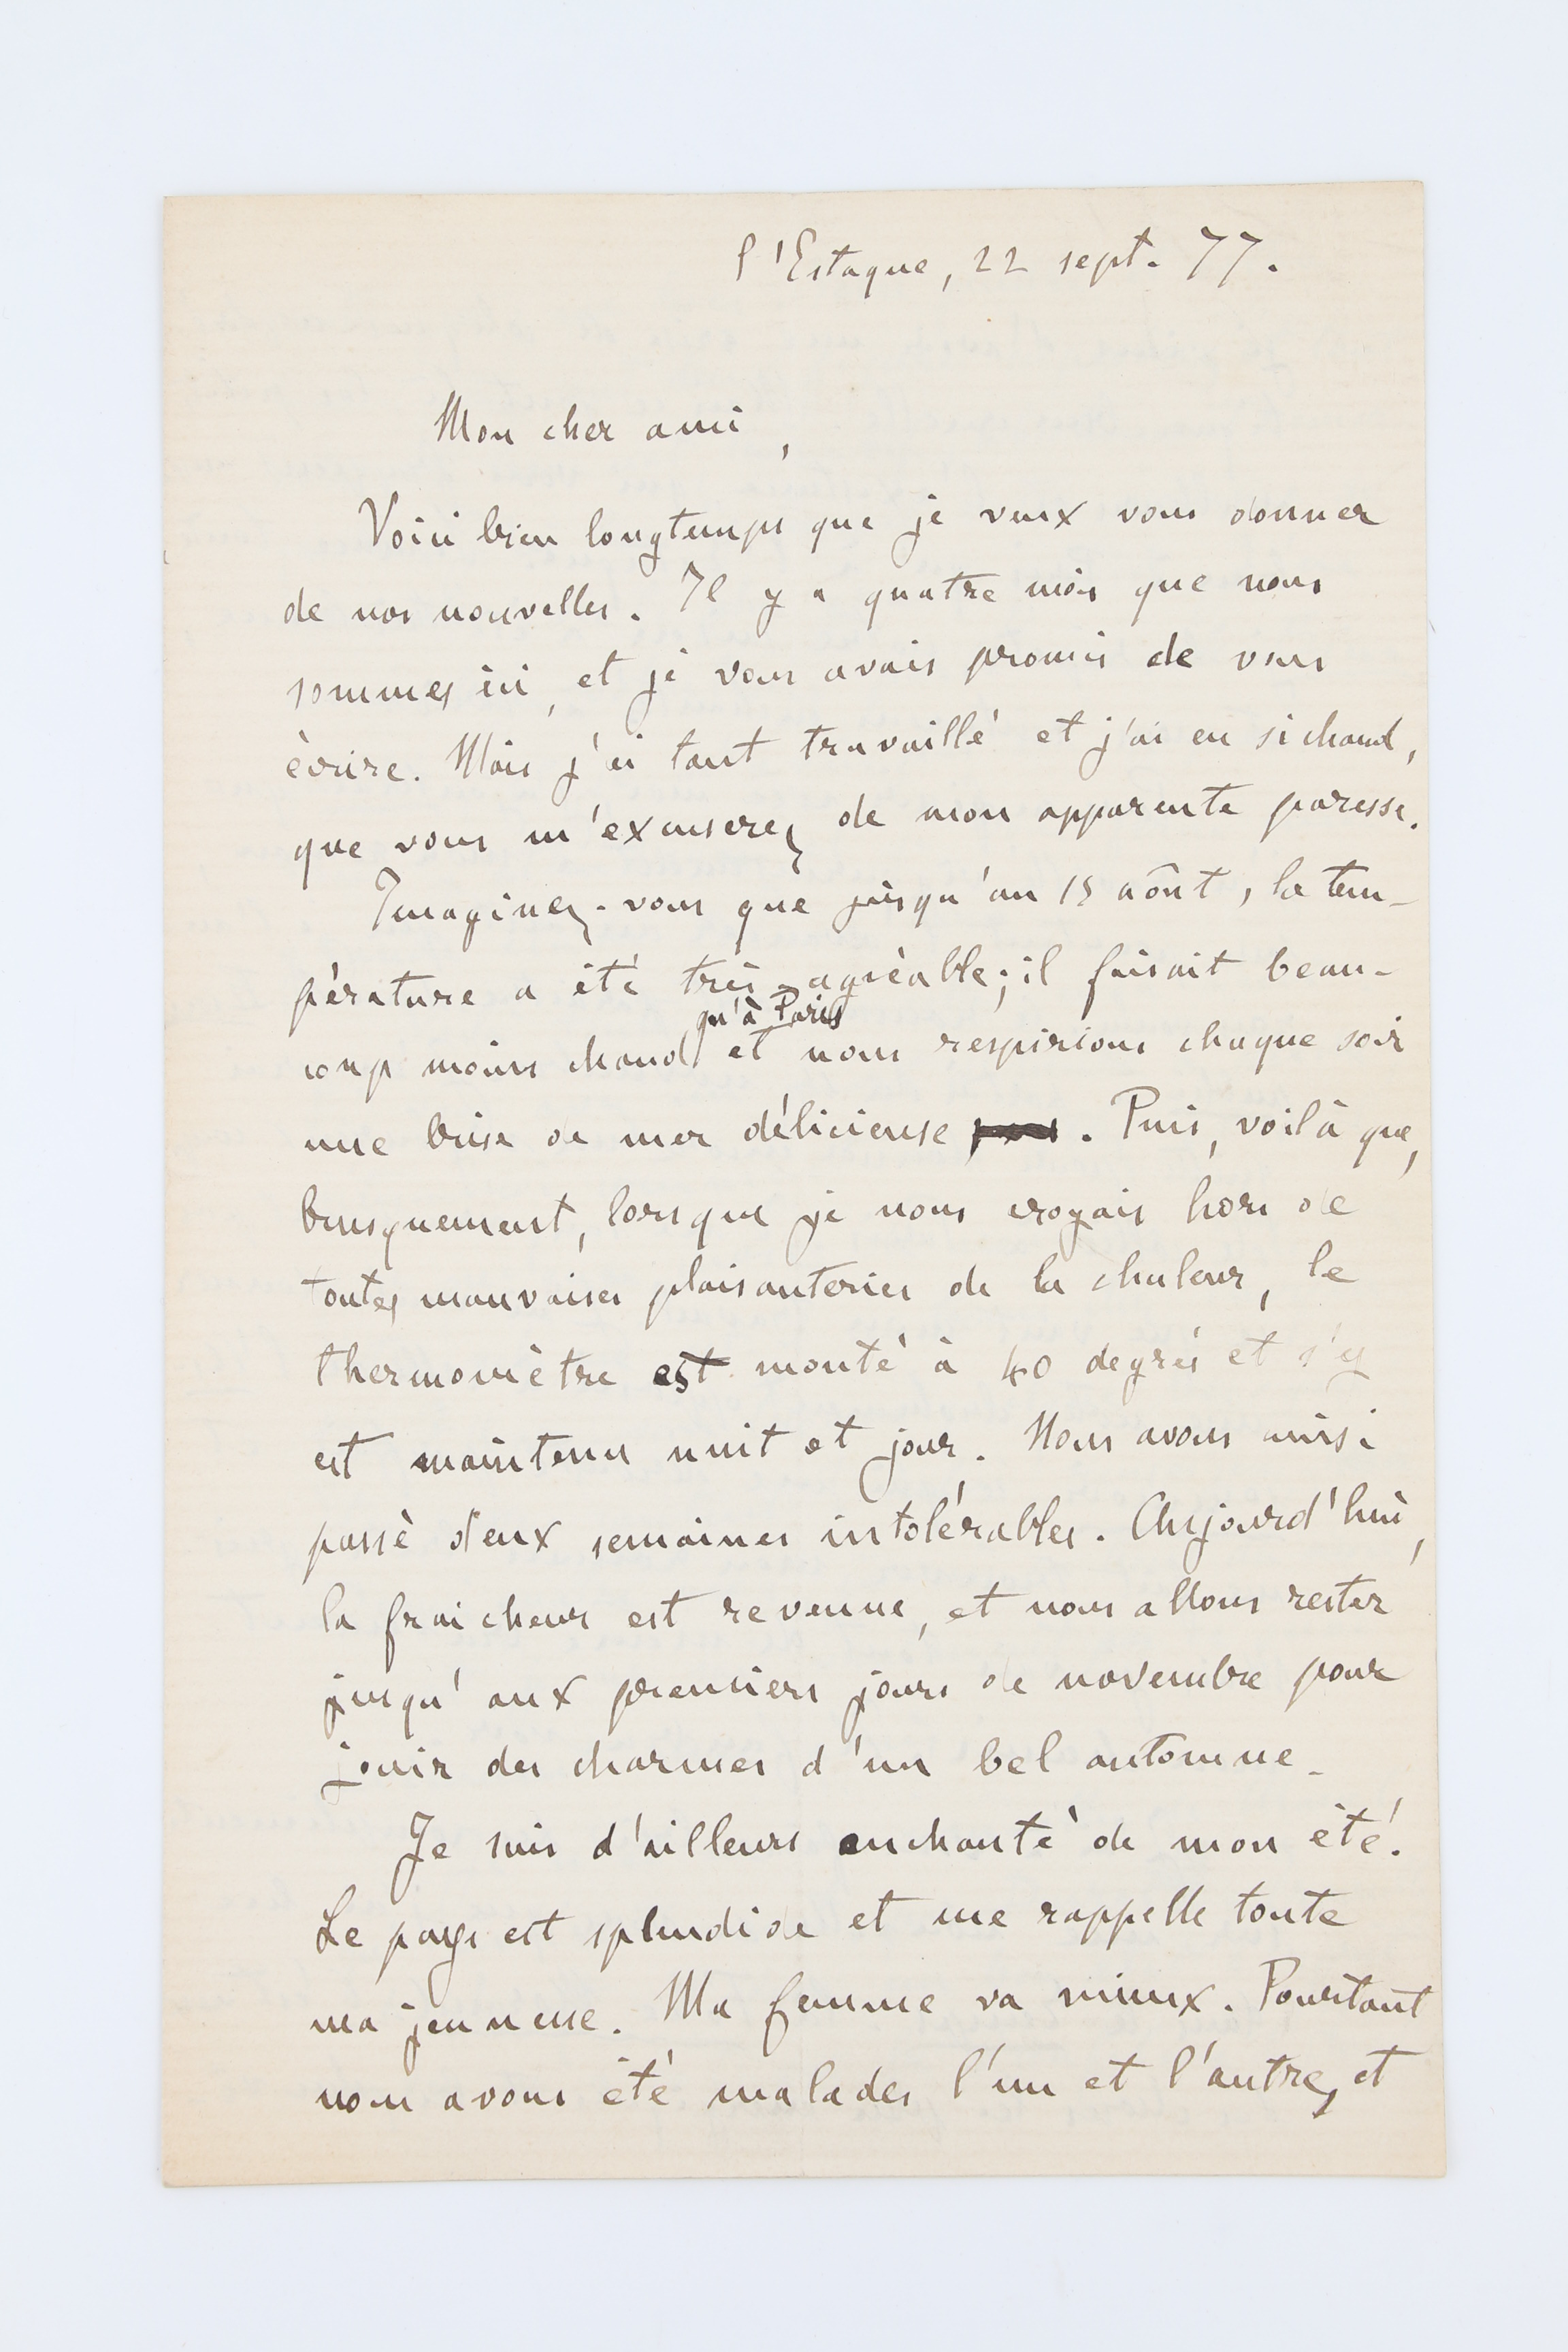 l'Estaque, 22 sept. 77.
Mon cher ami,
Voici bien longtemps que je veux vous donner
de nos nouvelles. Il y a quatre mois que nous
sommes ici, et je vous avais promis de vous
écrire. Mais j'ai tant travaillé et j'ai eu si chaud,
que vous m'excuserez de mon apparente paresse.
Imaginez-vous que jusqu'au 15 août, la tem-
pérature a été très-agréable; il faisait beau-
qu'à Paris
coup moins chaud et nous respirions chaque soir
une brise de mer délicieuse. Puis, voilà que,
brusquement, lorsque je nous croyais hors de
toutes mauvaises plaisanteries de la chaleur, le
thermomètre est monté à 40 degrés et s'y
est maintenu nuit et jour. Nous avons ainsi
passé deux semaines intolérables. Aujourd'hui,
la fraicheur est revenue, et nous allons rester
jusqu'aux premiers jours de novembre pour
jouir des charmes d'un bel automne.
Je suis d'ailleurs enchanté de mon été.
Le pays est splendide et me rappelle toute
ma jeunesse. Ma femme va mieux. Pourtant
nous avons été malades l'un et l'autre, et